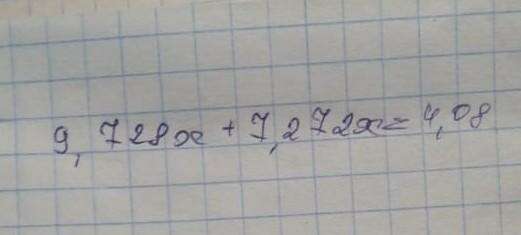 9,728x + 7,272x = 4,08